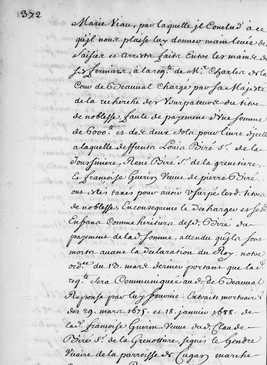 372
Marie Viau, par laquelle il Conclud à ce
qu'il nous plaise luy donner main levée des
Saisies et arrests faits Entre les mains de
fermiers, à la req.te de M.e Charles de la
Cour de Beauval Chargé par Sa Majesté
de la recherche des Usurpateurs du titre
de noblesse, faute de payement d'Une somme
de 6000.tt et de deux sols pour livre d'icelle
a laquelle deffunts Louis Biré S.r de la
René Biré S.r de la grenotiere
et françoise Guerin Veuve de pierre Biré
ont estés taxés pour avoir Usurpé led. titre
de noblesse. En consequence la décharger et ses
Enfans Comme héritiers de d. Biré du
payement de la d. Somme, attendu qu'ils sont
morts avant la déclaration du Roy, notre
ord.ce du 13. mars dernier portant que la
req.te Sera Communiquée aud. de Beauval
Réponse par luy fournie. Extraits mortuaires
des 29. mars 1675. et 18. janvier 1688. de
lad. françoise Guerin Veuve dud. Claude
Biré S.r de la Grenottiere, signés le Gendre
Vicaire de la parroisse de Cugan marche